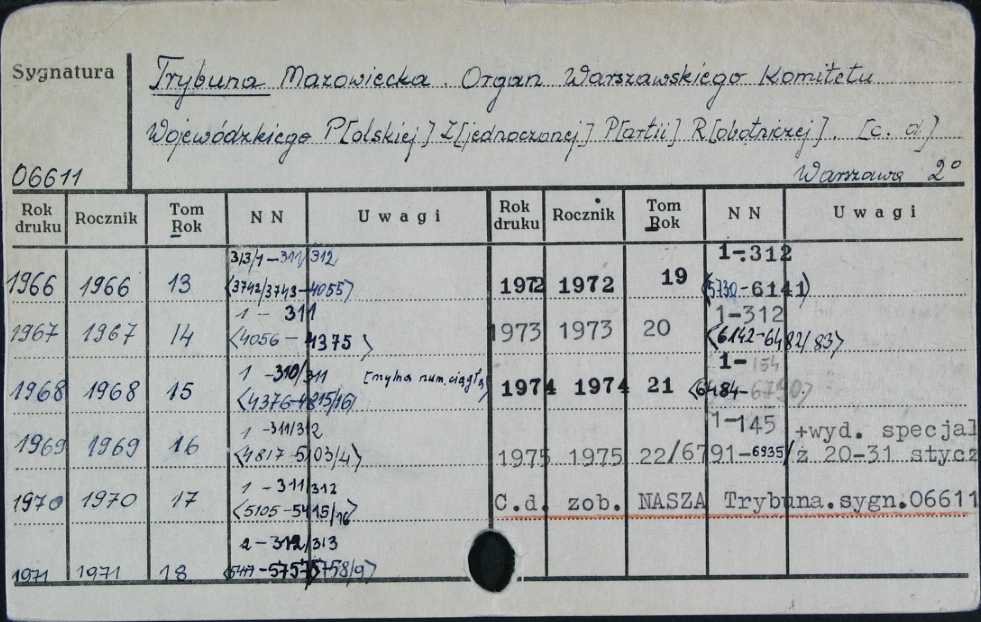 Sygnatura
Trybuna Mazowiecka. Organ Warszawskiego Komitetu
Wojewódzkiego P[olskiej] Z[jednoczonej] P[artii] R[obotniczej]. [c. d]
06611
Warszawa 2°
Rok druku Rocznik Tom Rok NN Uwagi Rok druku Rocznik Tom Rok NN Uwagi
313/1-311/312 1-312
1966 1966 13 <3742/3743-4055> 1972 1972 19 <5730-6141>
1 - 311 1-312
1967 1967 14 <4056 - 4375> 1973 1973 20 <6142-6482/83>
1 -310/311 [mylna num. ciągła] 1-154
1968 1968 15 <4376-4815/16> 1974 1974 21 <6484-6790>
1 -311/312 1-145 +wyd. specjal
1969 1969 16 <4817-5103/4> 1975 1975 22/6791-6935/ ż 20-31 stycz
1 - 311/312
1970 1970 17 <5105-5415/16> C.d. zob. NASZA Trybuna.sygn.06611
2-312/313
1971 1971 18 <5417-5757/5758/9>